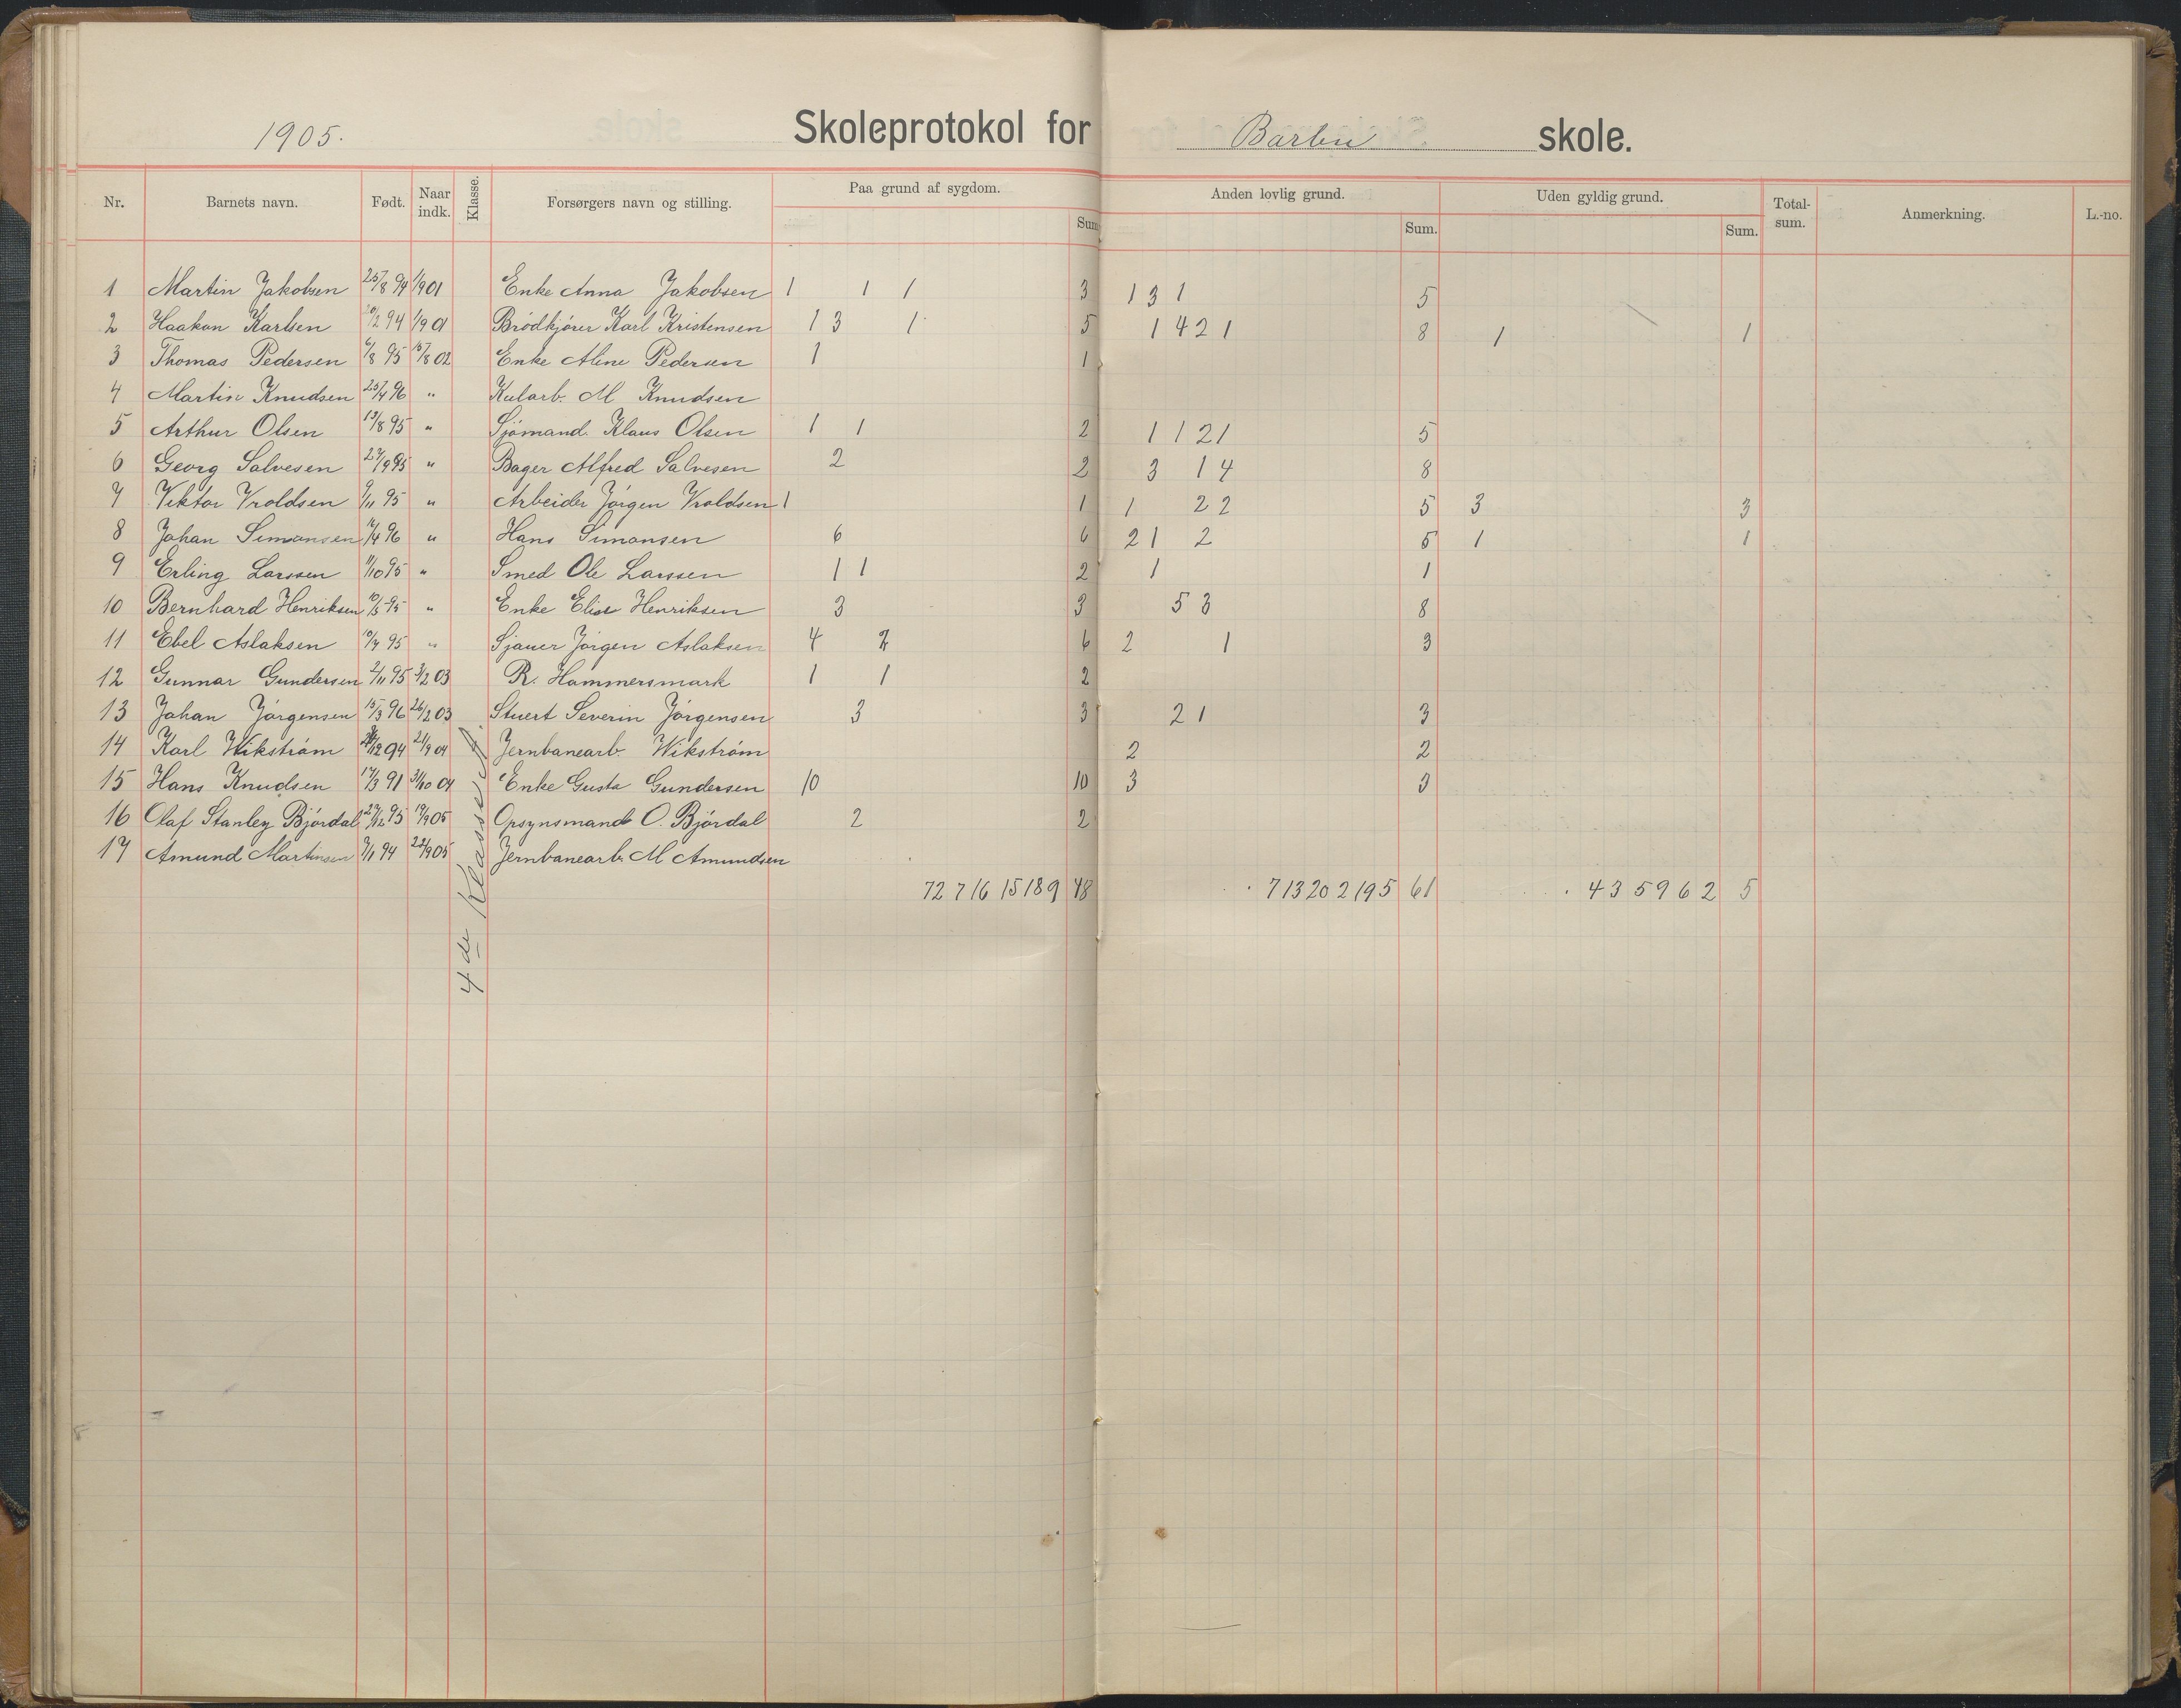 1905. Skoleprotokol for Barbu skole.
Nr. Barnets navn. Født. Naar indk. Klasse. Forsørgers navn og stilling. Paa grund af sygdom. Sum Anden lovlig grund. Sum. Uden gyldig grund. Sum. Total-sum. Anmerkning. L.-no.
1 Martin Jakobsen 25/8 94 1/9 01 Enke Anna Jakobsen 1 1 1 3 1 3 1 5
2 Haakon Karlsen 94 1/9 01 Brödkjörer Karl Kristensen 1 3 1 5 1 4 2 1 8 1 1
3 Thomas Pedersen 6/8 95 15/8 02 Enke Aline Pedersen 1 1
4 Martin Knudsen 25/4 96 " Kularb. M Knudsen
5 Arthur Olsen 13/8 95 " Sjömand. Klaus Olsen 1 1 2 1 1 2 1 5
6 Georg Salvesen 27/9 95 " Bager Alfred Salvesen 2 2 3 1 4 8
7 Viktor Vroldsen 9/11 95 " Arbeider Jörgen Vroldsen 1 1 1 2 2 5 3 3
8 Johan Simonsen 16/4 96 " Hans Simonsen 6 6 2 1 2 5 1 1
9 Erling Larssen 11/10 95 " Smed Ole Larssen 1 1 2 1 1
10 Bernhard Henriksen 10/5 95 " Enke Elise Henriksen 3 3 5 3 8
11 Ebel Aslaksen 10/7 95 " Sjauer Jörgen Aslaksen 4 2 6 2 1 3
12 Gunnar Gundersen 2/11 95 3/2 03 R. Hammersmark 1 1 2
13 Johan Jörgensen 15/3 96 26/2 03 Stuert Severin Jörgensen 3 3 2 1 3
14 Karl Wikström 12 94 21/9 04 Jernbanearb. Wikström 2 2
15 Hans Knudsen 17/3 91 31/10 04 Enke Gusta Gundersen 10 10 3 3
16 Olaf Stanley Björdal 29/12 95 19/9 05 Opsynsmand O. Björdal 2 2
17 Amund Martinsen 9/1 94 22/9 05 Jernbanearb. M Amundsen
72 7 16 15 18 9 48 7 13 20 2 19 5 61 4 3 5 9 6 2 5
4de Klasse